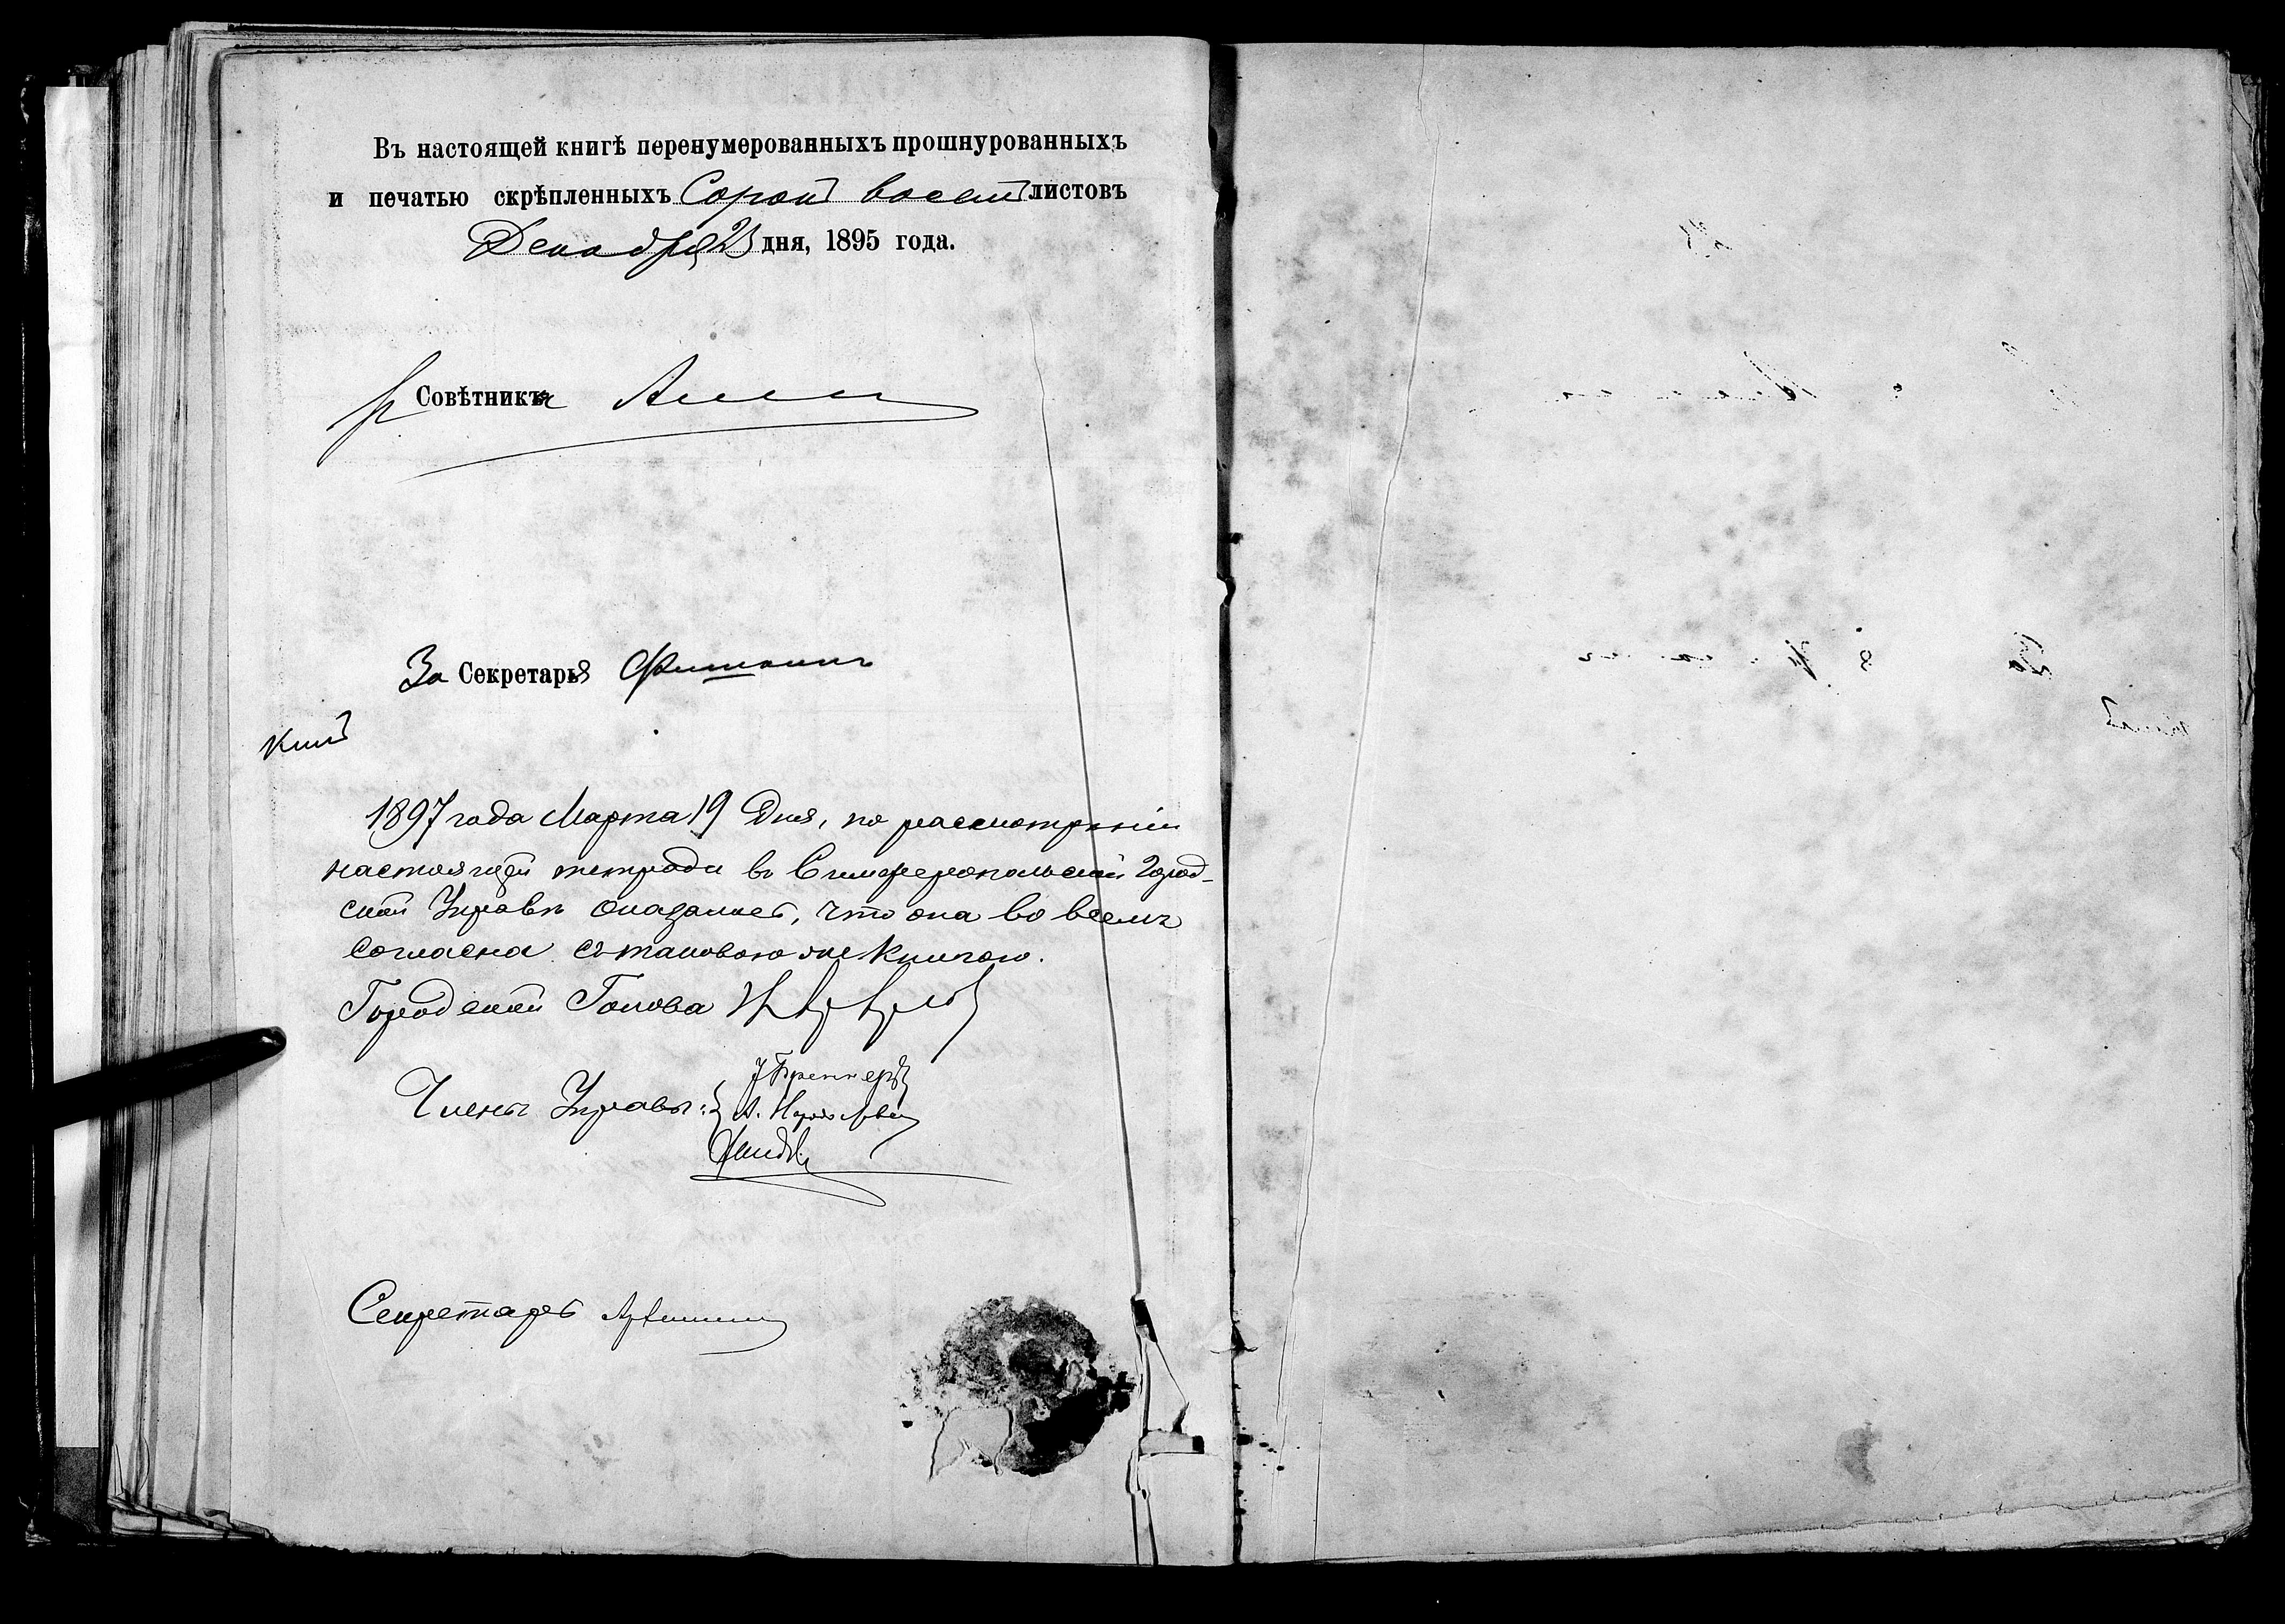 Въ настоящей книгѣ перенумерованныхъ прошнурованныхъ
и печатью скрѣпленныхъ Сорокъ восемь листовъ
Декабря 23 дня, 1895 года.
Совѣтника
За Секретаря
1897 года Марта 19 дня, по разсмотрѣніи
настоящей тетради въ Симферопольской Город-
ской Управѣ оказалось, что она во всемъ
согласна съ таковою же книгою.
Городской Голова
Члены Управы:
Секретарь